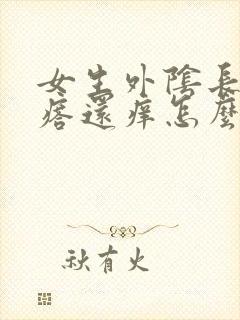 女生外陰長
痞還痒怎麼
秋有火